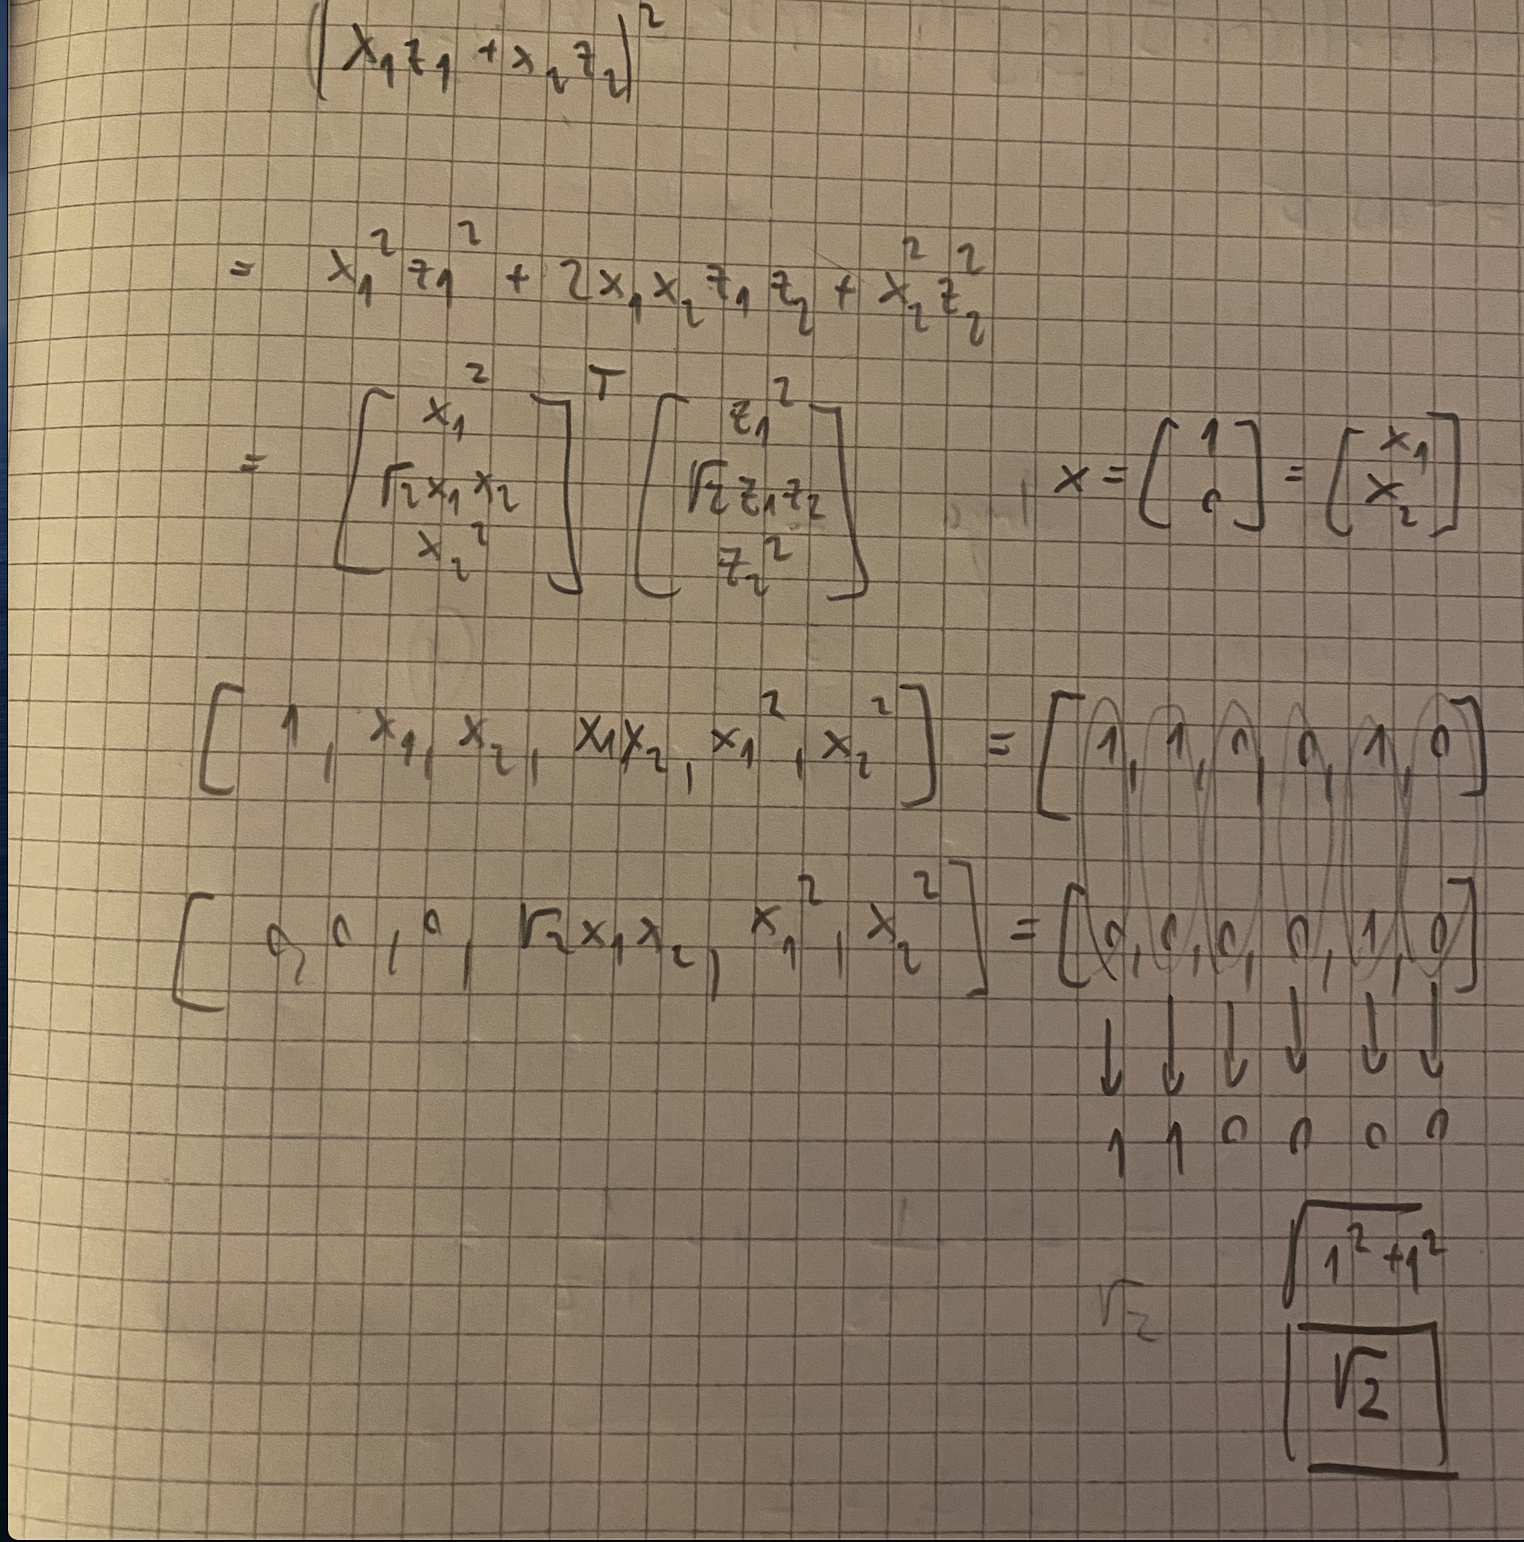 (x₁z₁ + x₂z₂)²
= x₁²z₁² + 2x₁x₂z₁z₂ + x₂²z₂²
= [x₁² √2x₁x₂ x₂²]ᵀ [z₁² √2z₁z₂ z₂²] x = [1 0] = [x₁ x₂]
[1, x₁, x₂, x₁x₂, x₁², x₂²] = [1, 1, 0, 0, 1, 0]
[0, 0, 0, √2x₁x₂, x₁², x₂²] = [0, 0, 0, 0, 1, 0]
↓ ↓ ↓ ↓ ↓ ↓
1 1 0 0 0 0
√(1² + 1²)
√2
√2